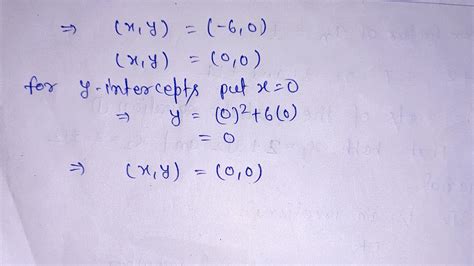 ⇒ (x,y) = (-6,0)
(x,y) = (0,0)
for y-intercepts put x=0
⇒ y = (0)²+6(0)
= 0
⇒ (x,y) = (0,0)